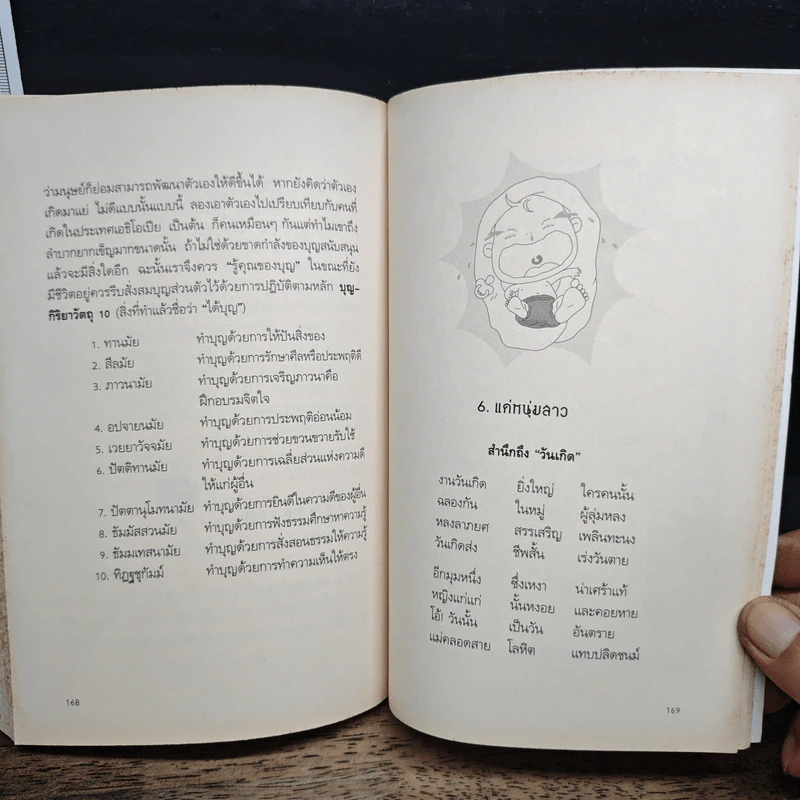 ว่ามนุษย์ก็ย่อมสามารถพัฒนาตัวเองให้ดีขึ้นได้ หากยังคิดว่าตัวเอง
เกิดมาแย่ ไม่ดีแบบนั้นแบบนี้ ลองเอาตัวเองไปเปรียบเทียบกับคนที่
เกิดในประเทศเอธิโอเปีย เป็นต้น ก็คนเหมือนๆ กันแต่ทำไมเขาถึง
ลำบากยากเข็ญมากขนาดนั้น ถ้าไม่ใช่ด้วยขาดกำลังของบุญสนับสนุน
แล้วจะมีสิ่งใดอีก ฉะนั้นเราจึงควร "รู้คุณของบุญ" ในขณะที่ยัง
มีชีวิตอยู่ควรรีบสั่งสมบุญส่วนตัวไว้ด้วยการปฏิบัติตามหลัก บุญ-
กิริยาวัตถุ 10 (สิ่งที่ทำแล้วชื่อว่า "ได้บุญ")
1. ทานมัย ทำบุญด้วยการให้ปันสิ่งของ
2. สีลมัย ทำบุญด้วยการรักษาศีลหรือประพฤติดี
3. ภาวนามัย ทำบุญด้วยการเจริญภาวนาคือ
ฝึกอบรมจิตใจ
4. อปจายนมัย ทำบุญด้วยการประพฤติอ่อนน้อม
5. เวยยาวัจจมัย ทำบุญด้วยการช่วยขวนขวายรับใช้
6. ปัตติทานมัย ทำบุญด้วยการเฉลี่ยส่วนแห่งความดี
ให้แก่ผู้อื่น
7. ปัตตานุโมทนามัย ทำบุญด้วยการยินดีในความดีของผู้อื่น
8. ธัมมัสสวนมัย ทำบุญด้วยการฟังธรรมศึกษาหาความรู้
9. ธัมมเทสนามัย ทำบุญด้วยการสั่งสอนธรรมให้ความรู้
10. ทิฏฐุชุกัมม์ ทำบุญด้วยการทำความเห็นให้ตรง
168
6. แค่หนุ่มสาว
สำนึกถึง "วันเกิด"
งานวันเกิด ยิ่งใหญ่ ใครคนนั้น
ฉลองกัน ในหมู่ ผู้ลุ่มหลง
หลงลาภยศ สรรเสริญ เพลินทะนง
วันเกิดส่ง ชีพสั้น เร่งวันตาย
อีกมุมหนึ่ง ซึ่งเหงา น่าเศร้าแท้
หญิงแก่แก่ นั้นหงอย และคอยหาย
โอ้! วันนั้น เป็นวัน อันตราย
แม่คลอดสาย โลหิต แทบปลิดชนม์
169